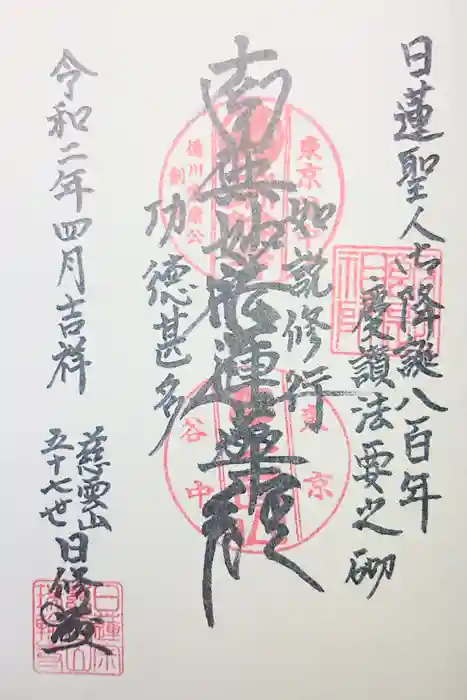 日蓮聖人御降誕八百年
慶讃法要之砌
如説修行
南無妙法蓮華経
功徳甚多
令和二年四月吉祥
慈雲山
五十七世日修
東京
徳川家康公
東京
谷中
日蓮宗